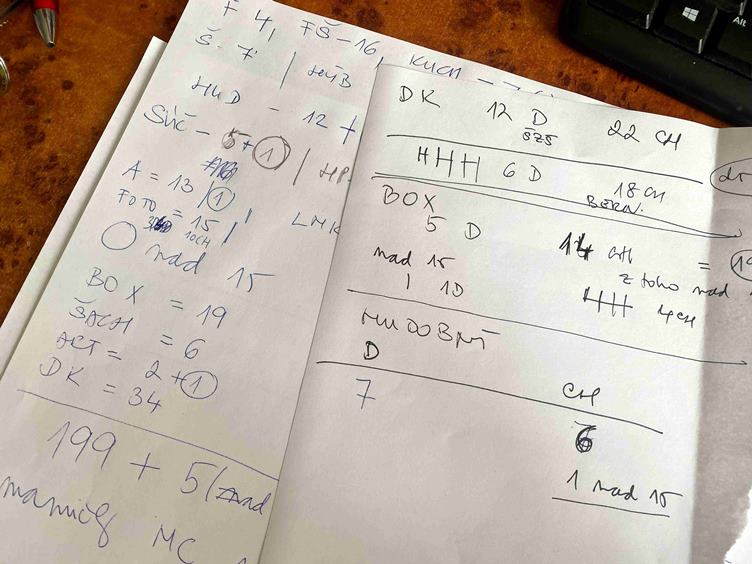 F 4, FŠ-16, KUCH -
Š. 7 | HUB
HUD - 12 +
SUČ - 5 + 1 | HP
A = 13 / 1
FOTO = 15 / LMK
10CH
nad 15
BOX = 19
ŠACH = 6
ACT = 2 + 1
DK = 34
199 + 5 (nad
MC
DK 12 D 22 CH
SZŠ
HHH 6 D 18 CH
BERN.
BOX
5 D 14 CH = 19
z toho nad
nad 15 HH 4CH
1 1D
HUDOBNÍ
D CH
7 6
1 nad 15
Alt